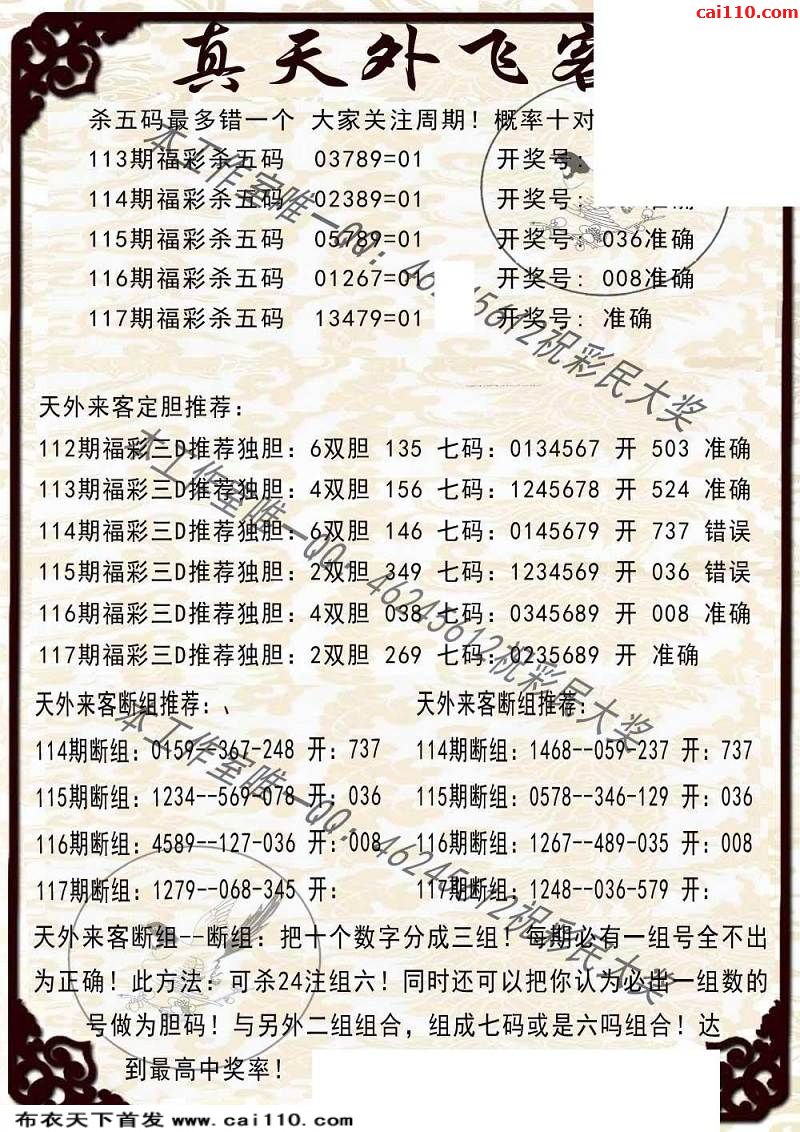 cai110.com
真天外飞客
杀五码最多错一个 大家关注周期！概率十对
113期福彩杀五码 03789=01 开奖号：
114期福彩杀五码 02389=01 开奖号： 准确
115期福彩杀五码 05789=01 开奖号：036准确
116期福彩杀五码 01267=01 开奖号：008准确
117期福彩杀五码 13479=01 开奖号：准确
天外来客定胆推荐：
112期福彩三D推荐独胆：6双胆 135 七码：0134567 开 503 准确
113期福彩三D推荐独胆：4双胆 156 七码：1245678 开 524 准确
114期福彩三D推荐独胆：6双胆 146 七码：0145679 开 737 错误
115期福彩三D推荐独胆：2双胆 349 七码：1234569 开 036 错误
116期福彩三D推荐独胆：4双胆 038 七码：0345689 开 008 准确
117期福彩三D推荐独胆：2双胆 269 七码：0235689 开 准确
天外来客断组推荐：、 天外来客断组推荐：
114期断组：0159--367-248 开：737 114期断组：1468--059-237 开：737
115期断组：1234--569-078 开：036 115期断组：0578--346-129 开：036
116期断组：4589--127-036 开：008 116期断组：1267--489-035 开：008
117期断组：1279--068-345 开： 117期断组：1248--036-579 开：
天外来客断组--断组：把十个数字分成三组！每期必有一组号全不出
为正确！此方法：可杀24注组六！同时还可以把你认为必出一组数的
号做为胆码！与另外二组组合，组成七码或是六吗组合！达
到最高中奖率！
本工作室唯一QQ：46245612祝彩民大奖
本工作室唯一QQ：46245612祝彩民大奖
本工作室唯一QQ：46245612祝彩民大奖
布衣天下首发 www.cai110.com